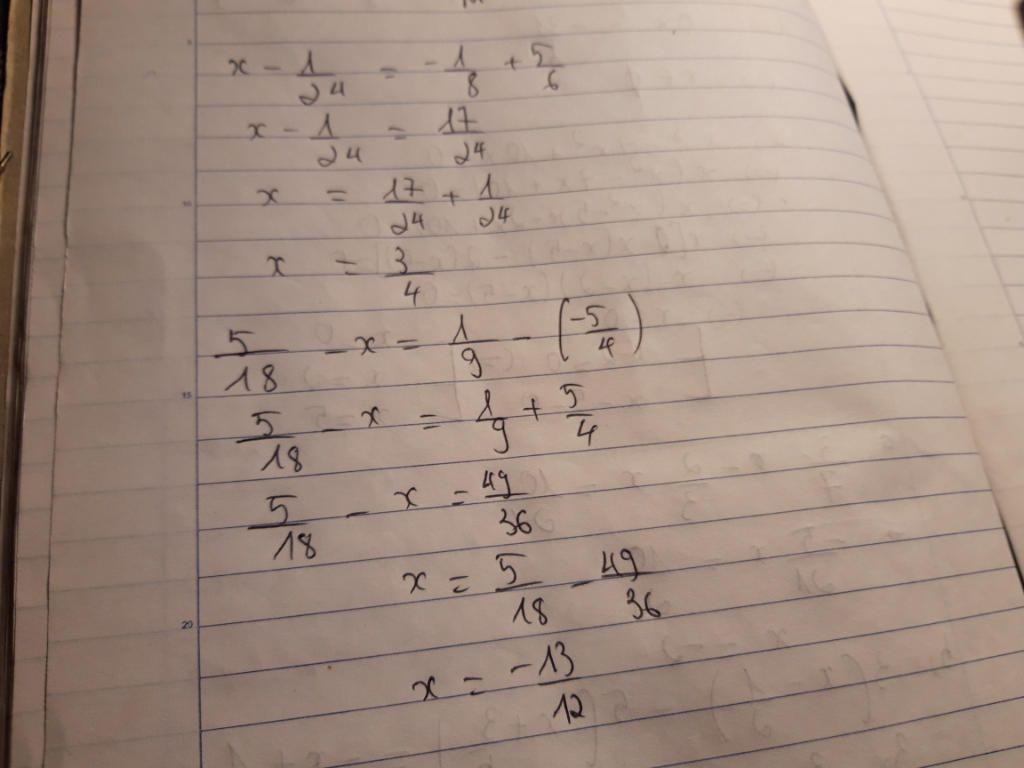 x - 1/24 = - 1/8 + 5/6
x - 1/24 = 17/24
x = 17/24 + 1/24
x = 3/4
5/18 - x = 1/9 - (-5/4)
5/18 - x = 1/9 + 5/4
5/18 - x = 49/36
x = 5/18 - 49/36
x = -13/12